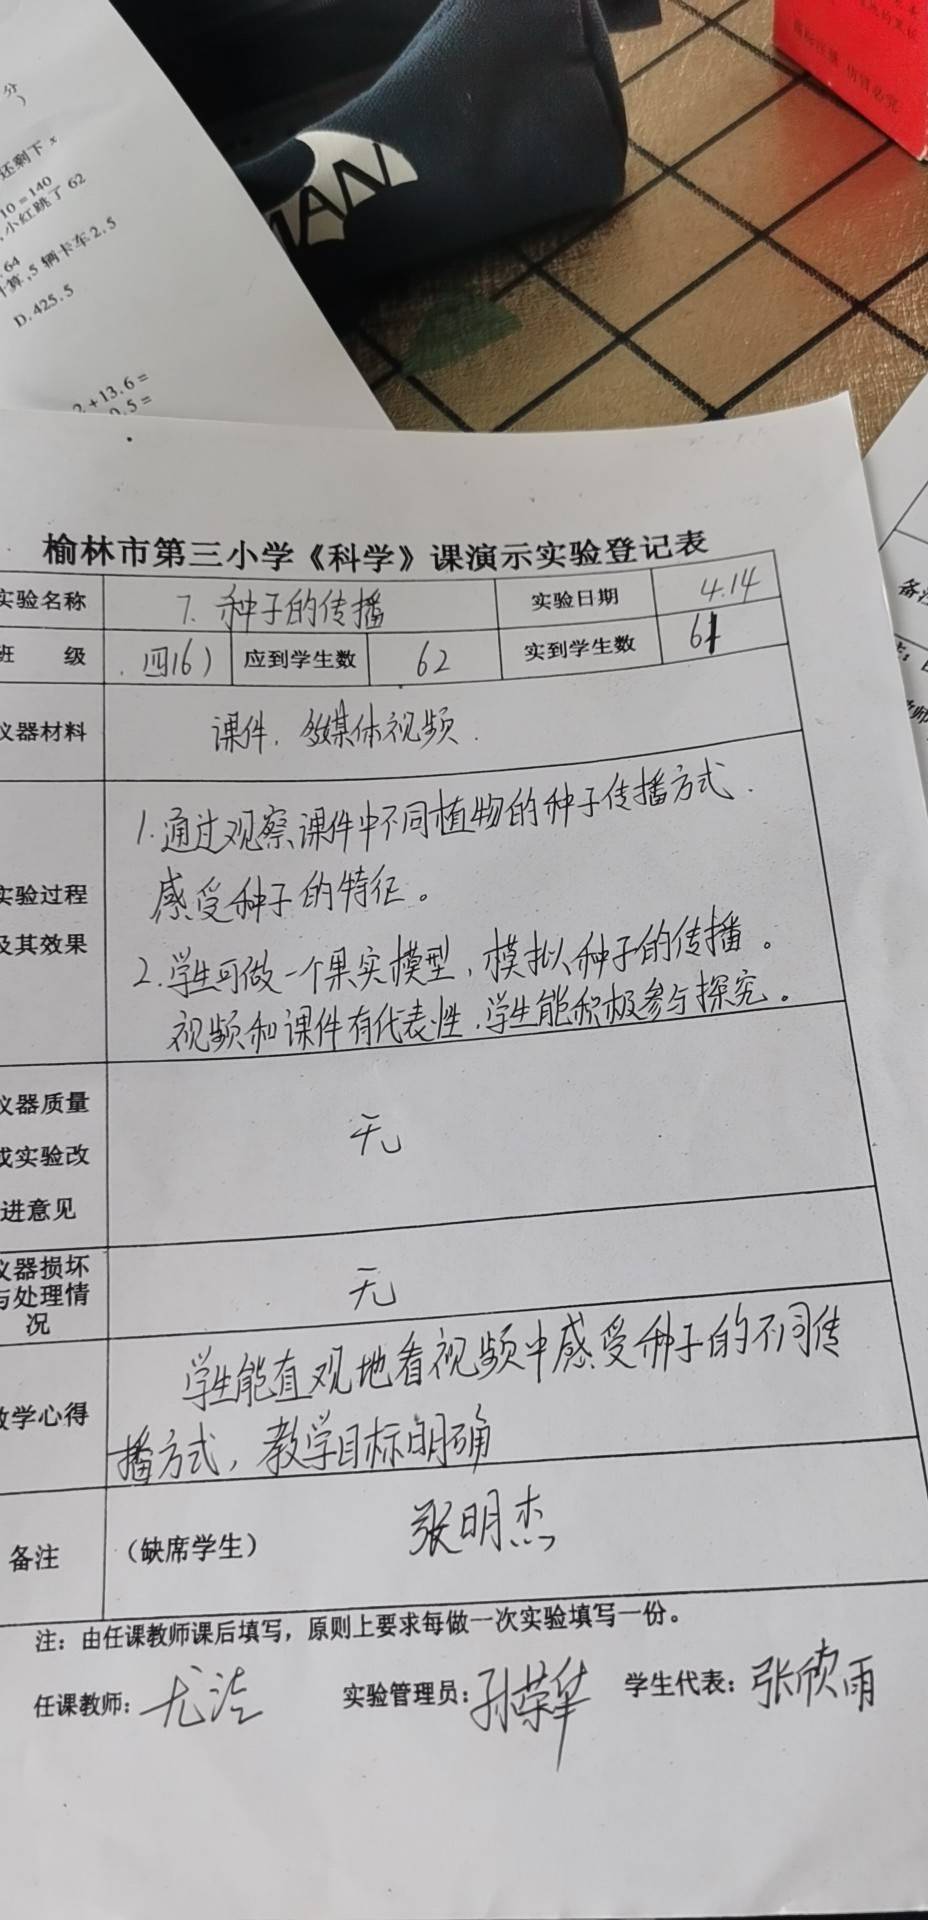 分
)
还剩下 x
10=140
小红跳了 62
.64
算,5 辆卡车 2.5
D.425.5
2+13.6=
0.5=
MAN
榆林市第三小学《科学》课演示实验登记表
实验名称 7. 种子的传播 实验日期 4.14
班 级 四(6) 应到学生数 62 实到学生数 61
仪器材料 课件. 多媒体视频.
实验过程
及其效果
1.通过观察课件中不同植物的种子传播方式.
感受种子的特征。
2.学生可做一个果实模型,模拟种子的传播。
视频和课件有代表性,学生能积极参与探究。
仪器质量
或实验改
进意见
无
仪器损坏
与处理情
况
无
教学心得
学生能直观地看视频中感受种子的不同传
播方式,教学目标明确
备注 (缺席学生) 张明杰
注:由任课教师课后填写,原则上要求每做一次实验填写一份。
任课教师: 尤洁 实验管理员: 孙荣华 学生代表: 张欣雨
备注